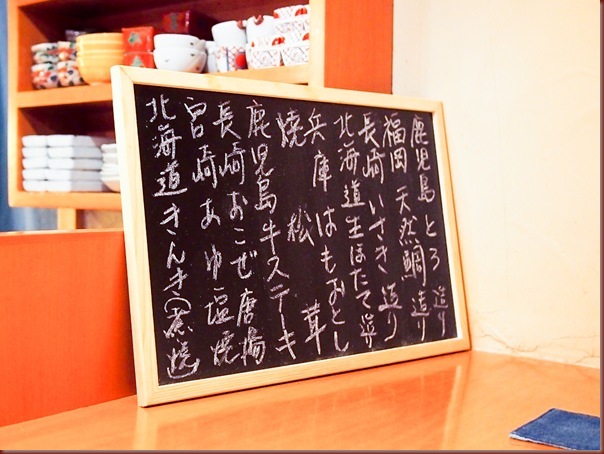 鹿児島 とろ 造り
福岡 天然鯛 造り
長崎 いさき 造り
北海道生ほたて造り
兵庫 はもおとし
焼 松 茸
鹿児島牛ステーキ
長崎おこぜ唐揚
宮崎 あゆ 塩焼
北海道きんき(煮焼)